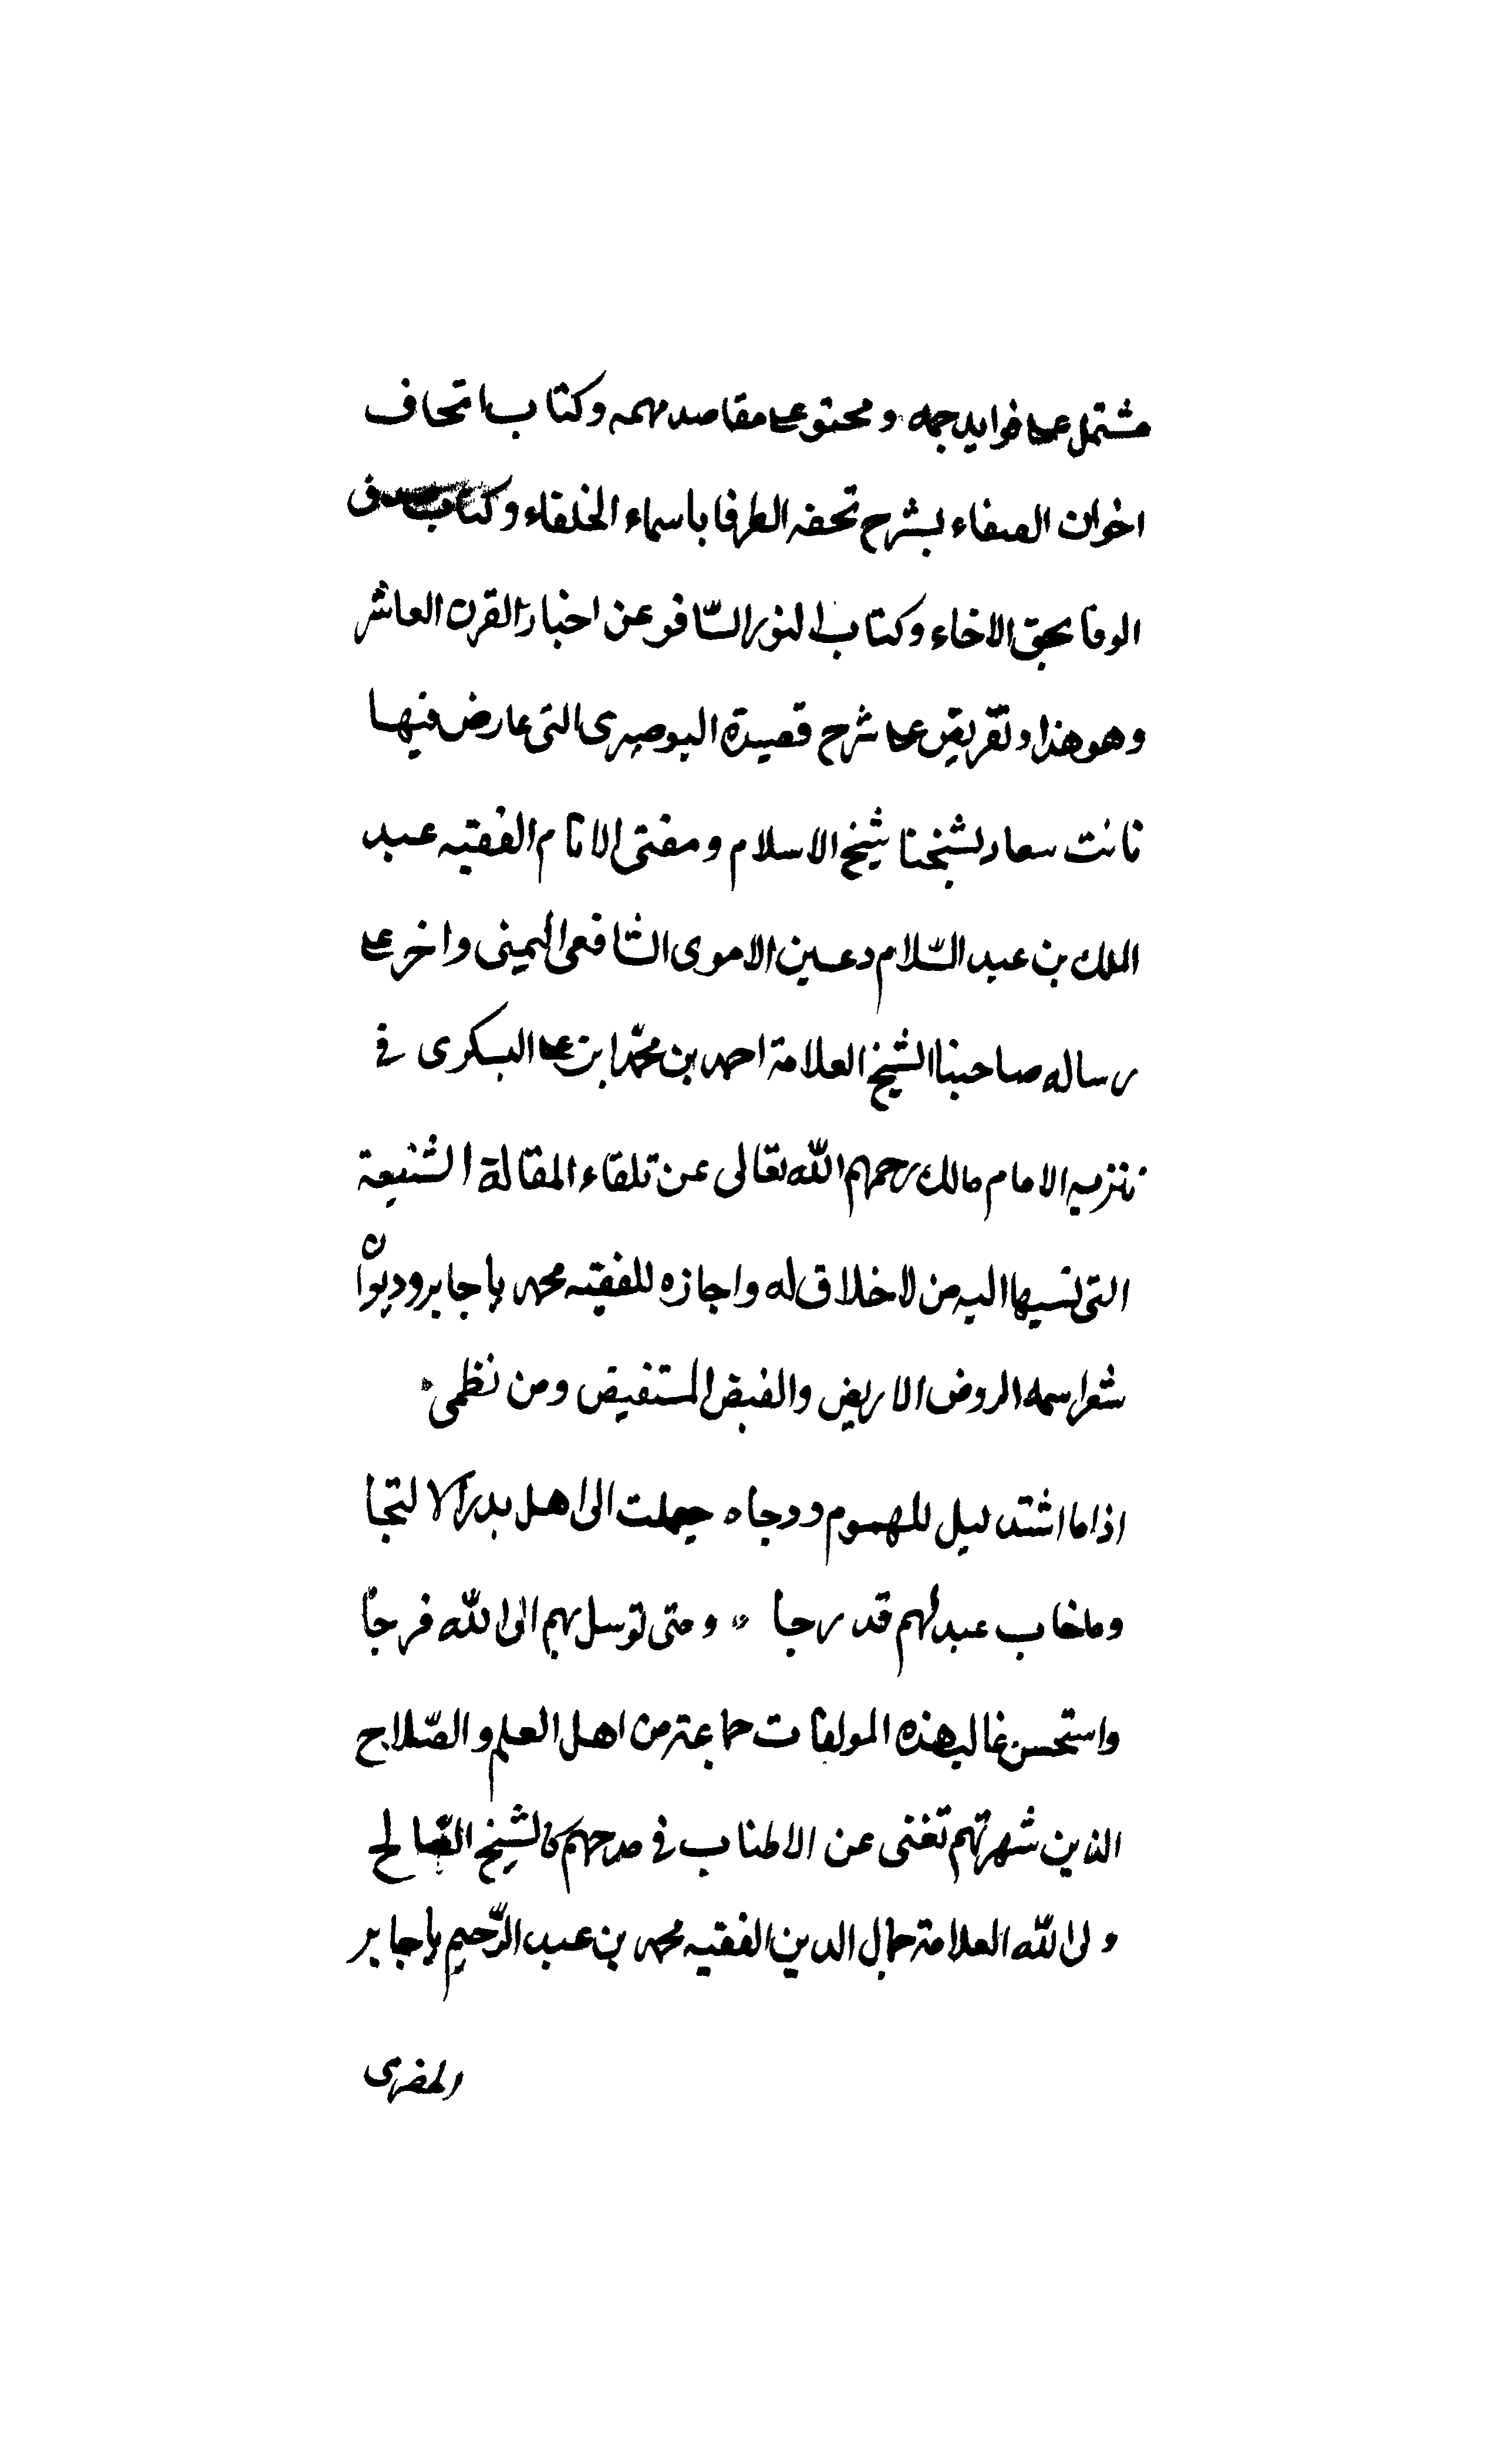 مشتمل على فوايد جمه ومحتو على مقاصد مهمه وكتاب اتحاف
اخوان الصفاء بشرح تحفه الظرفا باسماء الخلفاء وكتاب صدق
الوفا بحق الاخاء وكتاب النور السّافر عن اخبار القرن العاشر
وهو هذا وتقريض على شرح قصيدة البوصيرى التى عارض فيها
بانت سعاد لشيخنا شيخ الاسلام ومفتى الانام الفقيه عبد
الملك بن عبد السّلام دعسين الاموى الشافعى اليمنى واخر على
رساله صاحبنا الشيخ العلامة احمد بن محمّد ابن على البسكرى فى
تنزيه الامام مالك رحمهم الله تعالى عن تلقاء المقالة الشنيعة
التى نسبها اليه من لا خلاق له واجازه للفقيه محمد باجابر وديوان
شعر اسمه الروض الاريض والفيض المستفيض ومن نظمى
اذا ما اشتد ليل للهموم ودجاه جعلت الى اهل بدر الالتجا
وما خاب عبد لهم قد رجا ومتى توسل بهم الى الله فرجا
واستحسن غالب هذه المولفات جماعة من اهل العلم والصّلاح
الذين شهرتهم تغنى عن الاطناب فى مدحهم كالشيخ الصّالح
ولى الله العلامة جمال الدين الفقيه محمد بن عبد الرّحيم باجابر